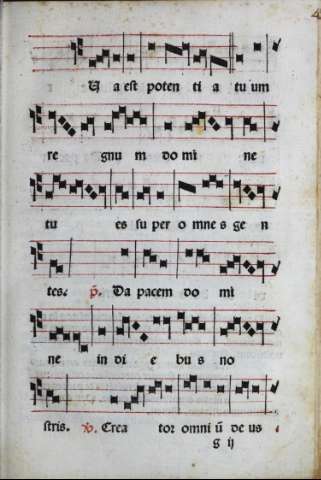 U a est poten ti a tu um
re gnu m do mi ne
tu es su per o mnes gen
tes. p. Da pacem do mi
ne in di e bu s no
stris. ℣. Crea tor omni ū de us
g ij